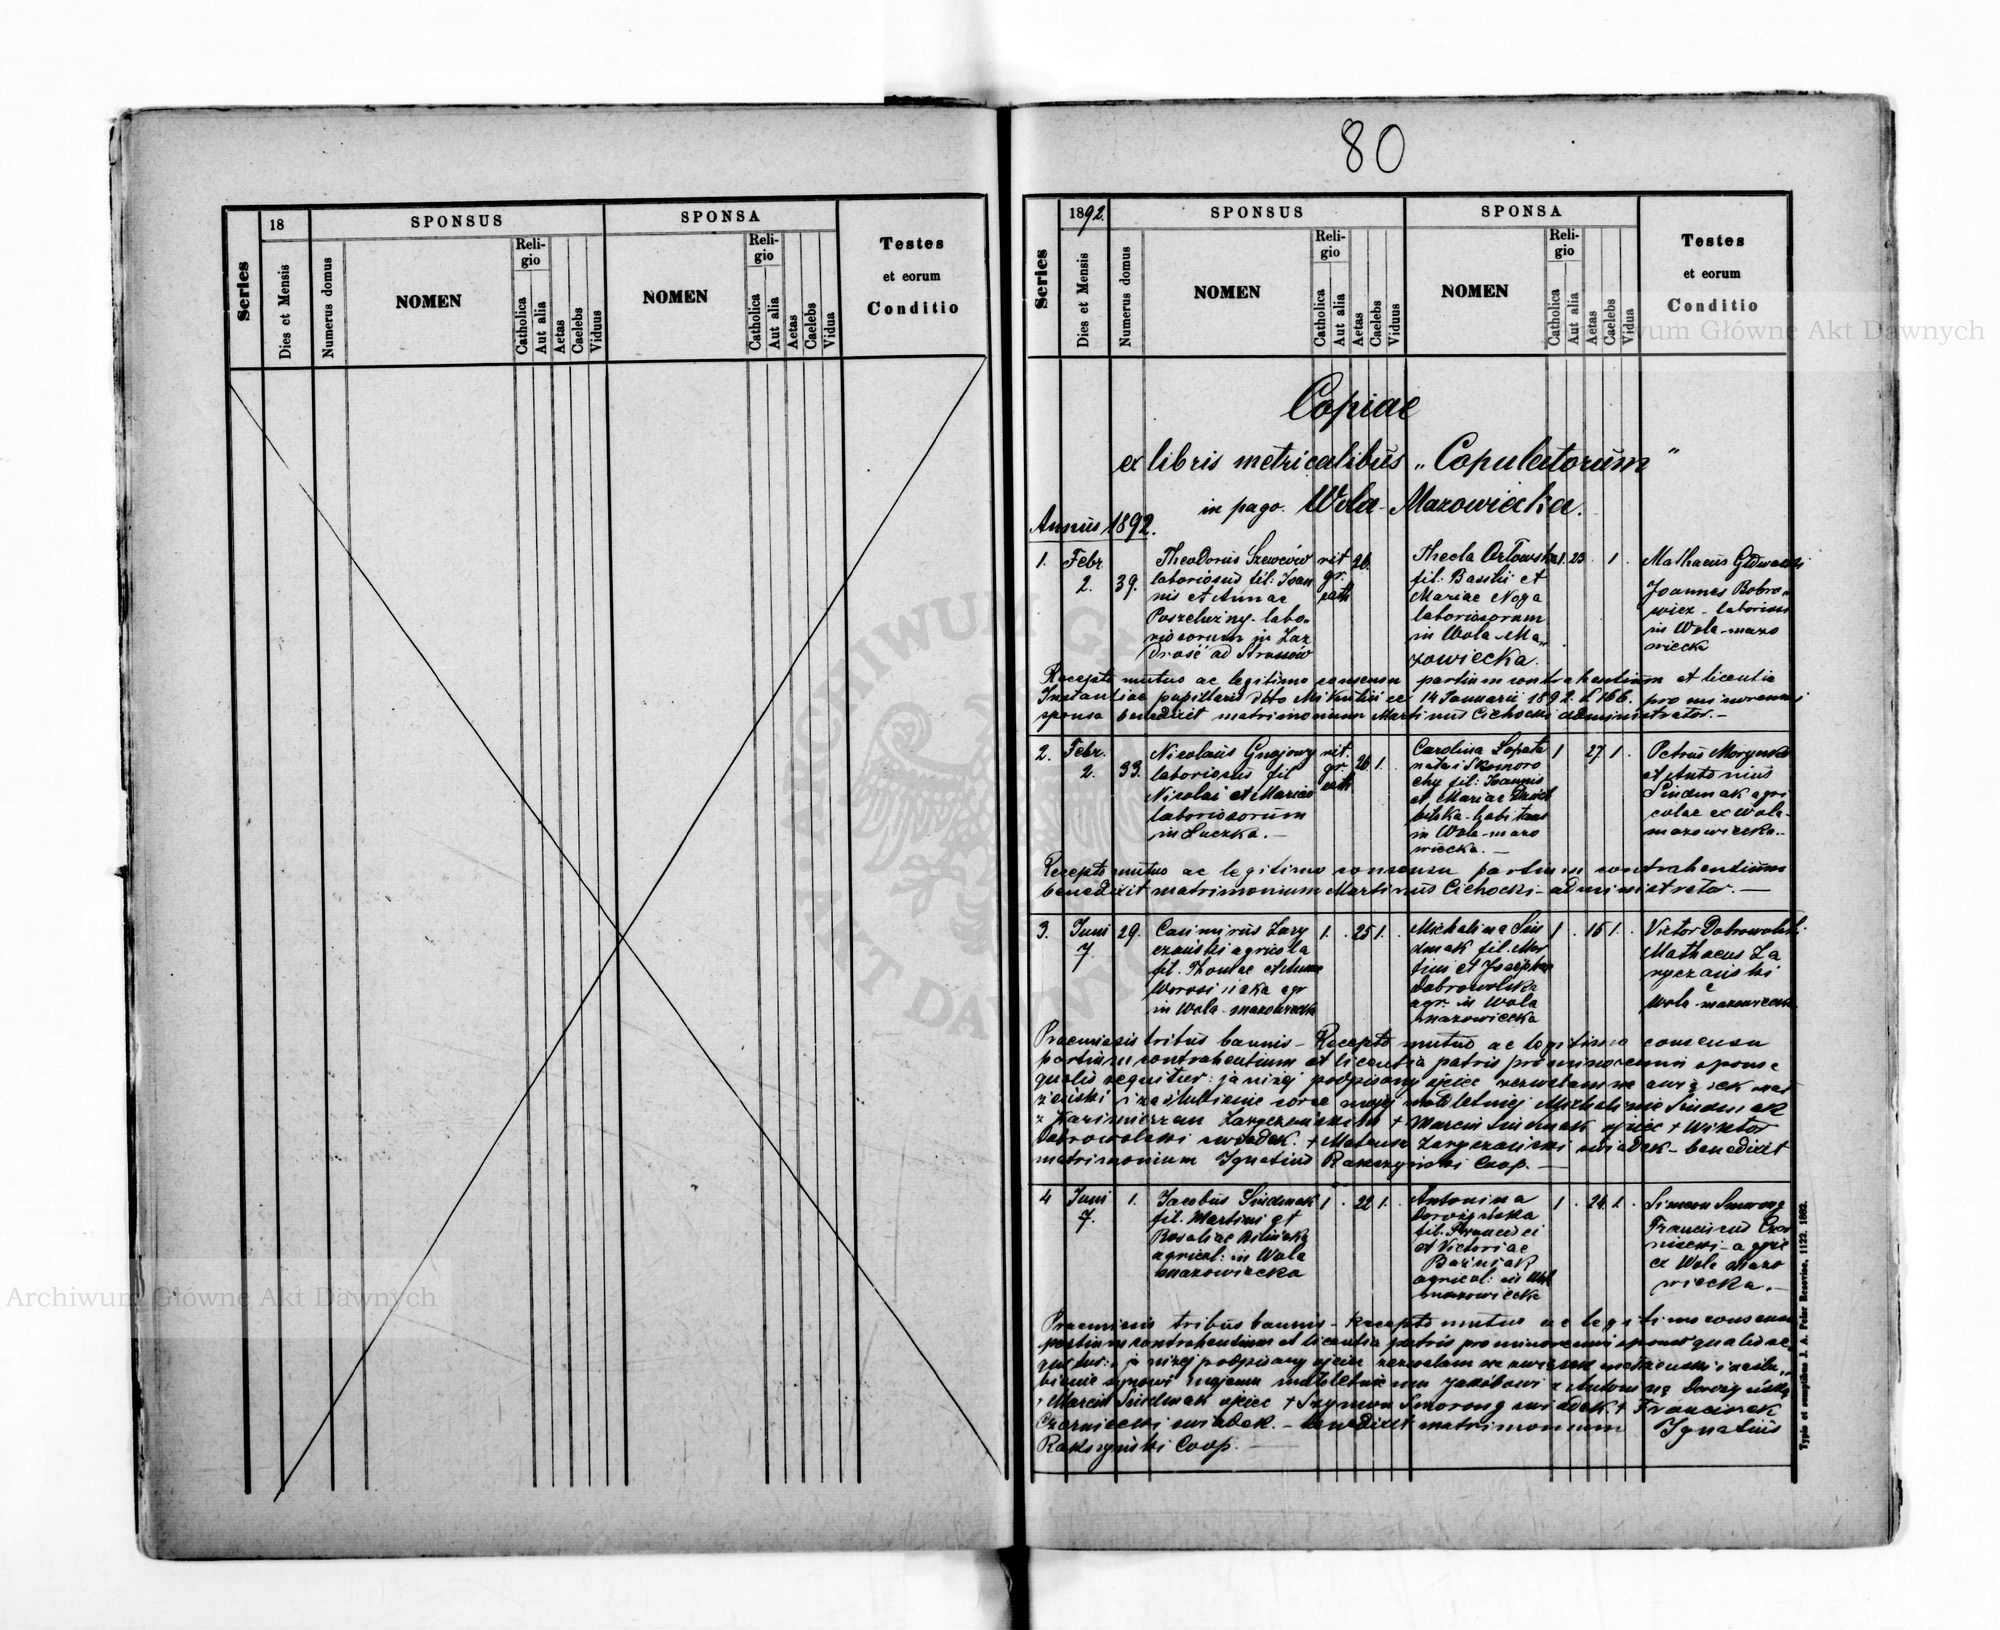 80
Series
18
Dies et Mensis
Numerus domus
SPONSUS
NOMEN
Reli-
gio
Catholica
Aut alia
Aetas
Caelebs
Viduus
SPONSA
NOMEN
Reli-
gio
Catholica
Aut alia
Aetas
Caelebs
Vidua
Testes
et eorum
Conditio
Series
1892.
Dies et Mensis
Numerus domus
SPONSUS
NOMEN
Reli-
gio
Catholica
Aut alia
Aetas
Caelebs
Viduus
SPONSA
NOMEN
Reli-
gio
Catholica
Aut alia
Aetas
Caelebs
Vidua
Testes
et eorum
Conditio
Copiae
ex libris metricalibus „Copulatorum"
in pago Wola-Mazowiecka.
Annus 1892.
1.
Febr
2.
39.
Theodorus Szewców
laboriosus fil. Joan
nis et Annae
labo„
riosorum in Zaz
drość ad Strusów
rit
gr.
cath
26.
Thecla Orłowska
fil. Basilii et
Mariae Noga
laboriosorum
in Wola-Ma„
zowiecka.
1. 23. 1.
Mathaeus
Joannes Bobro„
wicz - laboriosi
in Wola-mazo
wiecka
Recepto mutuo ac legitimo consensu partium contrahentium et licentia
Instantiae pupillaris dtto Mikulińce 14 Januarii 1892. L 166. pro minorenni
sponsa benedixit matrimonium Martinus Cichocki administrator.-
2.
Febr.
2.
33.
Nicolaus Gnojowy
laboriosus fil
Nicolai et Mariae
laboriosorum
in Łuczka.-
rit.
gr.
cath
26 1.
Carolina Łopata
nata in Skomoro
chy fil: Joannis
et Mariae
habitans
in Wola-mazo
wiecka.-
1 27 1.
Petrus
et Antonius
Sindmak agri
colae ex Wola-
mazowiecka.-
Recepto mutuo ac legitimo consensu partium contrahentium
benedixit matrimonium Martinus Cichocki-administrator.-
3.
Juni
7.
29.
Casimirus Zary
czański agricola
fil. Thomae et Annae
agr
in Wola-mazowiecka
1. 25 1.
Michalina Sin
dmak fil. Mar
tini et Josephae
Dobrowolska
agr. in Wola
mazowiecka
1 16 1.
Victor Dobrowolski
Mathaeus Za
ryczański
e
Wola-mazowiecka
Praemissis tribus bannis - Recepto mutuo ac legitimo consensu
partium contrahentium et licentia patris pro minorenni sponsa
qualis sequitur: ja niżej podpisany ojciec zezwalam na związek mał
żeński i zaślubienie córce mojej małoletniej Michalinie Sindmak
z Kazimierzem Zaryczańskim + Marcin Sindmak ojciec + Wiktor
Dobrowolski świadek. + Mateusz Zaryczański świadek - benedixit
matrimonium Ignatius Raszczyński Coop.-
4
Juni
7.
1.
Jacobus Sindmak
fil. Martini et
Rosaliae Bilińska
agricol: in Wola
mazowiecka
1 22 1.
Antonina
fil. Francisci
et Victoriae
Baźniak
agricol: in Wol
mazowiecka
1 24 1.
Simeon Smorong
Franciscus Czar
niecki - agric
ex Wola mazo
wiecka.-
Praemissis tribus bannis - Recepto mutuo ac legitimo consensu
partium contrahentium et licentia patris pro minorenni sponso qualis se„
quitur: ja niżej podpisany ojciec zezwalam na związek małżeński i zaślu„
bienie synowi mojemu małoletniemu Jakóbowi z Antoniną
+ Marcin Sindmak ojciec + Szymon Smorong świadek + Franciszek
Czarniecki świadek.- benedixit matrimonium Ignatius
Raszczyński Coop.-
Typis et sumptibus J. A. Pelar Resoviae, 1122. 1882.
Archiwum Główne Akt Dawnych
wum Główne Akt Dawnych
ARCHIWUM GŁ
AKT DAWNYCH